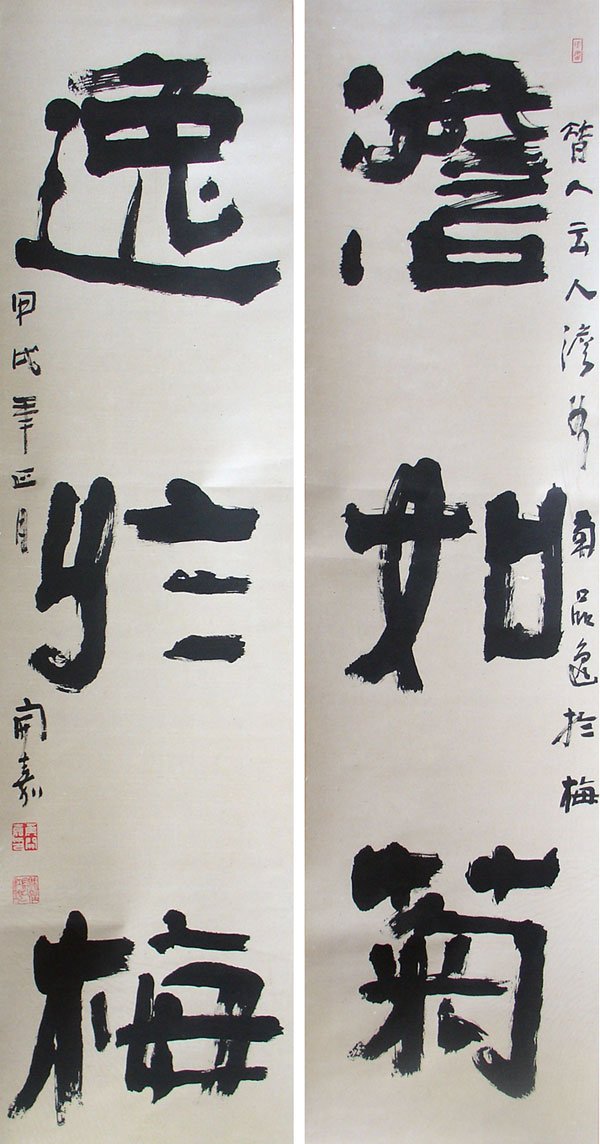 昔人云人澹如菊品逸於梅
澹如菊
逸於梅
甲戌年正月開嘉